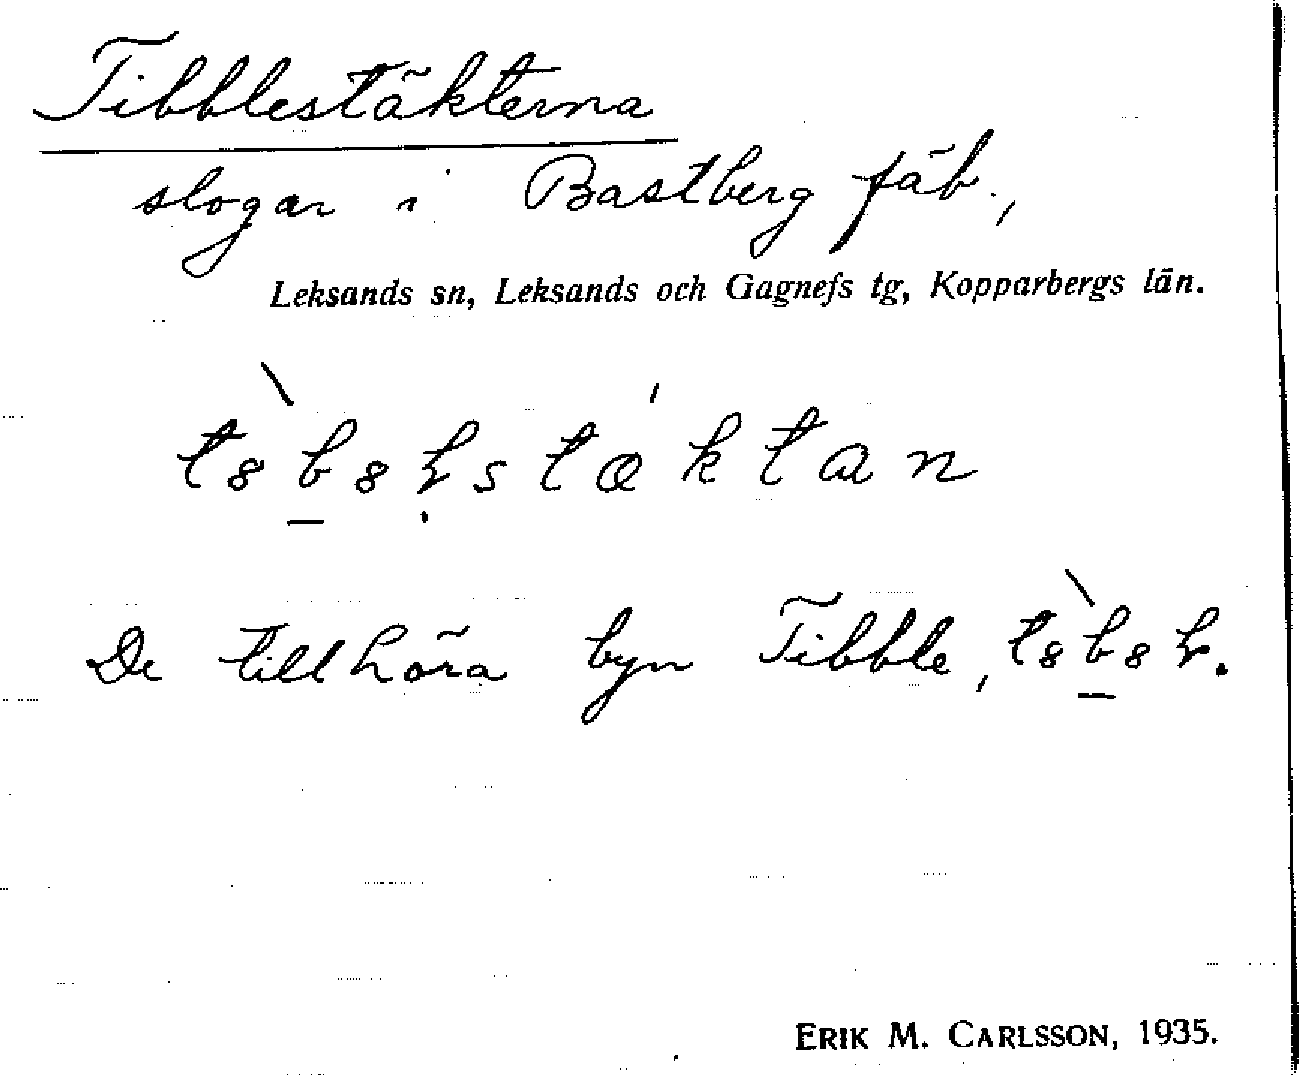 Tibblestäkterna
slogar i Bastberg fäb.,
Leksands sn, Leksands och Gagnefs tg, Kopparbergs län.
De tillhöra byn Tibble,
ERIK M. CARLSSON, 1935.